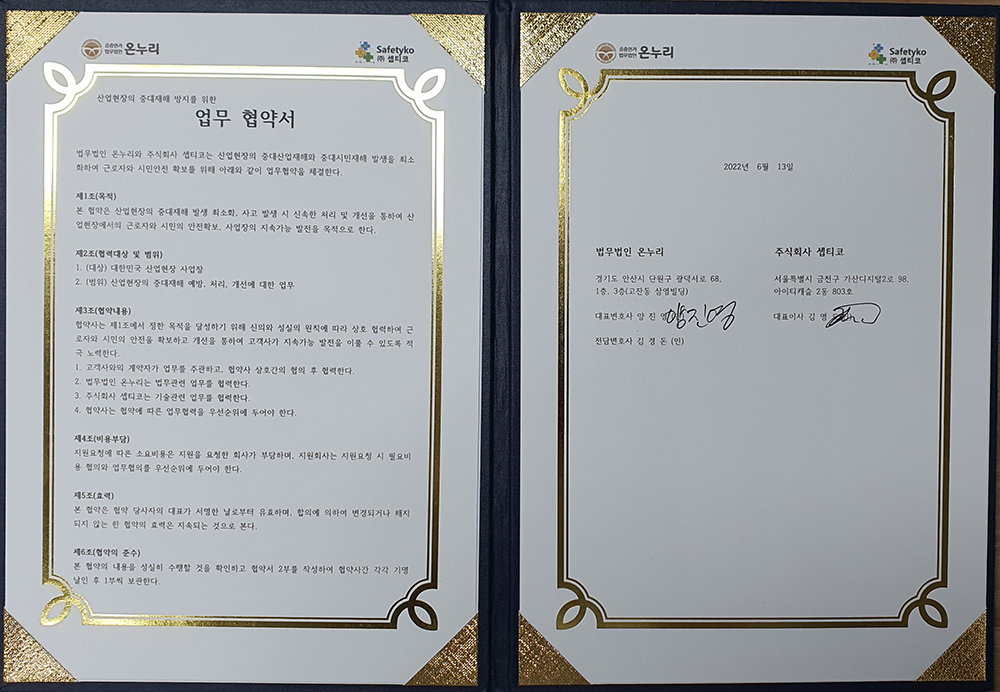 공증인가
법무법인 온누리
Safetyko
㈜ 셉티코
산업현장의 중대재해 방지를 위한
업무 협약서
법무법인 온누리와 주식회사 셉티코는 산업현장의 중대산업재해와 중대시민재해 발생을 최소
화하여 근로자와 시민안전 확보를 위해 아래와 같이 업무협약을 체결한다.
제1조(목적)
본 협약은 산업현장의 중대재해 발생 최소화, 사고 발생 시 신속한 처리 및 개선을 통하여 산
업현장에서의 근로자와 시민의 안전확보, 사업장의 지속가능 발전을 목적으로 한다.
제2조(협력대상 및 범위)
1. (대상) 대한민국 산업현장 사업장
2. (범위) 산업현장의 중대재해 예방, 처리, 개선에 대한 업무
제3조(협약내용)
협약사는 제1조에서 정한 목적을 달성하기 위해 신의와 성실의 원칙에 따라 상호 협력하여 근
로자와 시민의 안전을 확보하고 개선을 통하여 고객사가 지속가능 발전을 이룰 수 있도록 적
극 노력한다.
1. 고객사와의 계약자가 업무를 주관하고, 협약사 상호간의 협의 후 협력한다.
2. 법무법인 온누리는 법무관련 업무를 협력한다.
3. 주식회사 셉티코는 기술관련 업무를 협력한다.
4. 협약사는 협약에 따른 업무협력을 우선순위에 두어야 한다.
제4조(비용부담)
지원요청에 따른 소요비용은 지원을 요청한 회사가 부담하며, 지원회사는 지원요청 시 필요비
용 협의와 업무협의를 우선순위에 두어야 한다.
제5조(효력)
본 협약은 협약 당사자의 대표가 서명한 날로부터 유효하며, 합의에 의하여 변경되거나 해지
되지 않는 한 협약의 효력은 지속되는 것으로 본다.
제6조(협약의 준수)
본 협약의 내용을 성실히 수행할 것을 확인하고 협약서 2부를 작성하여 협약사간 각각 기명
날인 후 1부씩 보관한다.
공증인가
법무법인 온누리
Safetyko
㈜ 셉티코
2022년 6월 13일
법무법인 온누리
경기도 안산시 단원구 광덕서로 68,
1층, 3층(고잔동 삼영빌딩)
대표변호사 양 진 영 양진영
전담변호사 김 경 돈 (인)
주식회사 셉티코
서울특별시 금천구 가산디지털2로 98,
아이티캐슬 2동 803호
대표이사 김 영